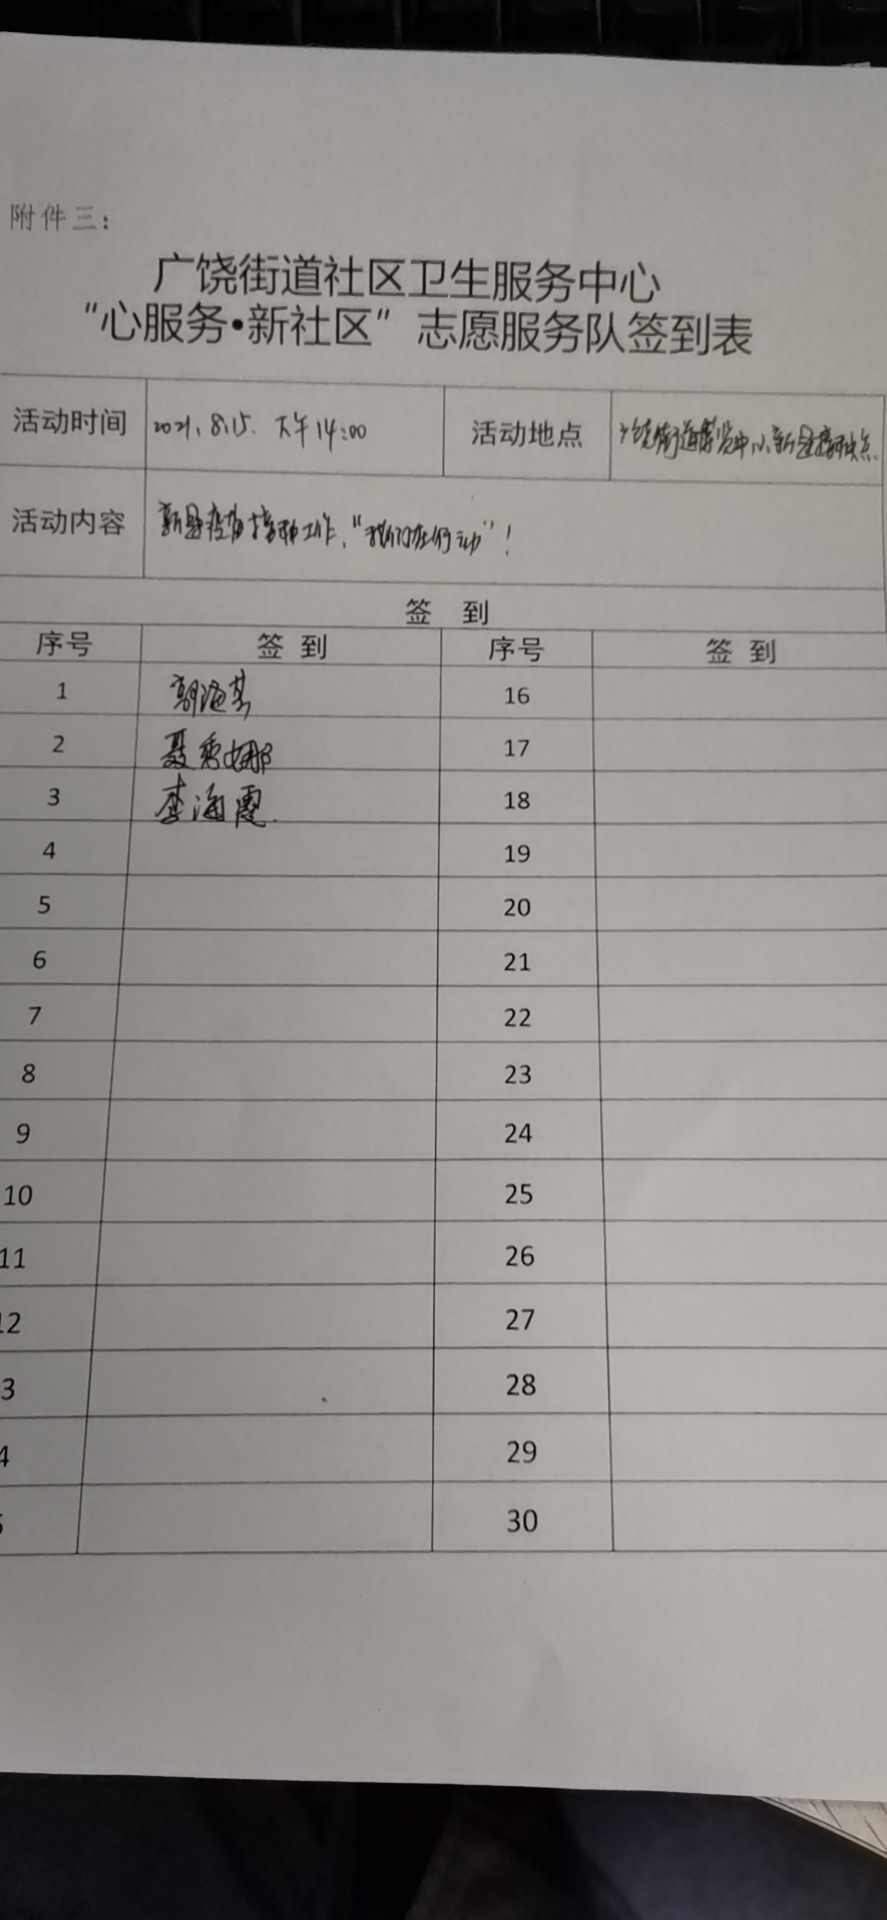 附件三：
广饶街道社区卫生服务中心
“心服务•新社区”志愿服务队签到表
活动时间 2021.8.15. 下午14:00 活动地点 广饶街道博览中心新冠接种点
活动内容 新冠疫苗接种工作，“我们在行动”！
签 到
序号 签到 序号 签到
1 海 16
2 聂秀娜 17
3 李海霞 18
4 19
5 20
6 21
7 22
8 23
9 24
10 25
11 26
12 27
3 28
4 29
30